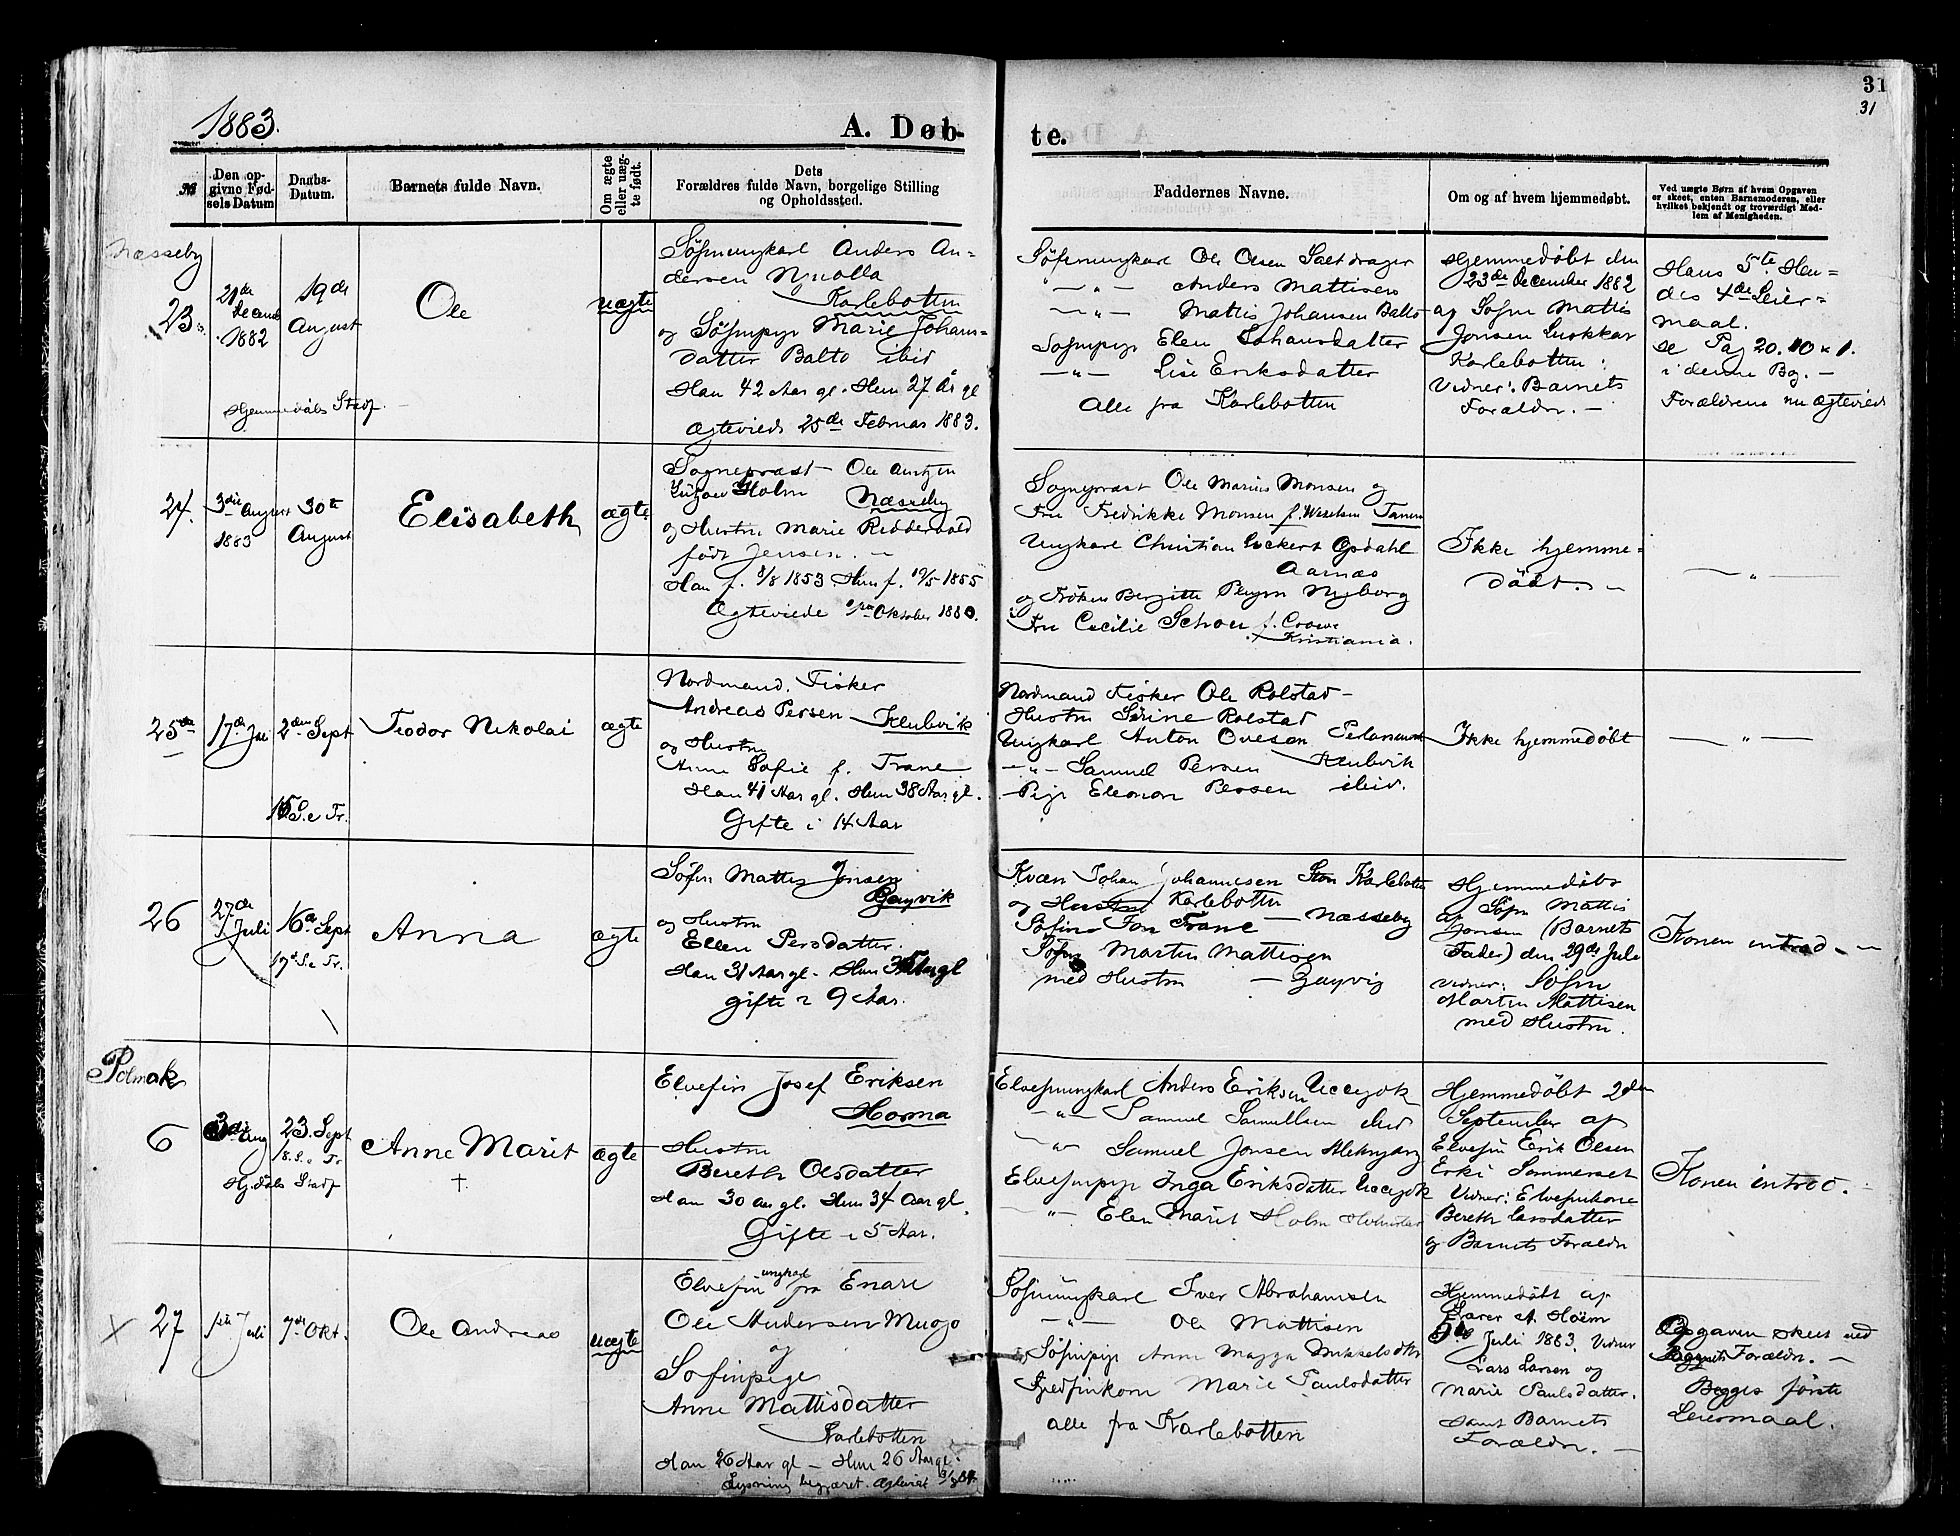 31
31
1883.
A. Døb-
te.
№
Den op-
givne Fød-
sels Datum
Daabs-
Datum.
Barnets fulde Navn.
Om ægte
eller uæg-
te født.
Dets
Forældres fulde Navn, borgelige Stilling
og Opholdssted.
Faddernes Navne.
Om og af hvem hjemmedøbt.
Ved uægte Børn af hvem Opgaven
er skeet, enten Barnemoderen, eller
hvilket bekjendt og troværdigt Med-
lem af Menigheden.
Næsseby
23
21de
Decemb
1882
19de
August
Hjemmedåbs Stadf.
Ole
uægte
Søfinungkarl Anders An-
dersen Njualla
Karlebotten
og Søfinpige Marie Johans-
datter Balto ibid
Han 42 Aar gl. Hun 27 År gl
Ægteviede 25de Februar 1883.
Søfinungkarl Ole Olsen Saltdrager
" — " — Anders Mattisen
— " — Mattis Johansen Balto
Søfinpige Elen Johansdatter
— " — Lise Eriksdatter
Alle fra Karlebotten
Hjemmedöbt den
23de December 1882
af Søfin Mattis
Jonsen Luokkar
Karlebotten:
Vidner: Barnets
Forældre. —
Hans 5te Hen-
des 4de Leier-
maal.
se Pag 20. 10 1.
i denne Bog. —
Forældrene nu ægteviede
24.
3die August
1883
30te
August
Elisabeth
ægte
Sognepræst Ole
Lützow Holm Næsseby
og Hustru Marie Reddervold
født Jensen. —
Han f. 8/8 1853 Hun f. 19/5 1855
Ægteviede Oktober 1880.
Sognepræst Ole Marius Monsen og
Fru Fredrikke Monsen f. Wesselsen Tanen
Ungkarl Christian Lockert Opdahl
Aarnæs
og Frøken Bergitte Nyborg
Fru Cecilie Schou f.
Kristiania.
Ikke hjemme-
döbt. —
— " —
25de
17de Juli
2den Sept
15 S. e Tr.
Teodor Nikolai
ægte
Nordmand. Fisker
Andreas Persen Klubvik
og Hustru
Anne Sofie f. Trane
Han 41 Aar gl. Hun 38 Aar gl.
Gifte i 14 Aar
Nordmand Fisker Ole Rolstad —
Hustru Sirine Rolstad
Ungkarl Anton Ovesen
— " — Samuel Persen Klubvik
Pige Eleonora Persen ibid.
Ikke hjemmedøbt
— " —
26
27de
Juli
16de Sept
17de S. e Tr.
Anna
ægte
Søfin Mattis Jonsen
Gayvik
og Hustru
Ellen Persdatter.
Han 31 Aar gl. Hun Aar gl
gifte i 9 Aar.
Kvæn Johan Johannesen Karlebotten
og Hustru Karlebotten
Søfin Jon Trane — Næsseby
Søfin Martin Mattisen
med Hustru — Gayvig
Hjemmedöbt
af Søfin Mattis
Jonsen (Barnets
Fader) den 29de Juli
Vidner: Søfin
Martin Mattisen
med Hustru.
Konen introd. —
Polmak
6
3die Aug
23. Sept
18. S. e Tr
Hj. dåbs Stadf
Anne Marit
†
ægte
Elvefin Josef Eriksen
Horma
Hustru
Bereth Olsdatter
Han 30 aar gl. Hun 34 Aar gl.
Gifte i 5 Aar.
Elvefinungkarl Anders Eriksen Uccejok
— " — Samuel Samuelsen ibid
— " — Samuel Jonsen
Elvefinpige Inga Eriksdatter Uccejok
— " — Elen Marit Holm
Hjemmedöbt 2den
September af
Elvefin Erik Olsen
Erki Sommerset
Vidner: Elvefinkone
Bereth Larsdatter
og Barnets Forældre
Konen introd. —
X
27
1ste Juli
7de Okt.
Ole Andreas
uægte
Elvefin ungkarl fra Enare
Ole Andersen Muojo
og
Søfinpige
Anne Mattisdatter
Karlebotten
Han 26 Aar gl — Hun 26 Aar gl.
Lysning begjæret. Ægteviet
Søfinungkarl Iver Abrahamsen
— " — Ole Mattisen
Søfinpige Anne Magga Mikkelsdtr
Fjeldfinkone Marie Paulsdatter
alle fra Karlebotten
Hjemmedöbt af
Lærer A. Hoëm
Juli 1883. Vidner
Lars Larsen og
Marie Paulsdatter.
samt Barnets
Forældre. —
Opgaven skeet ved
Barnets Forældre. —
Begges første
Leiermaal.